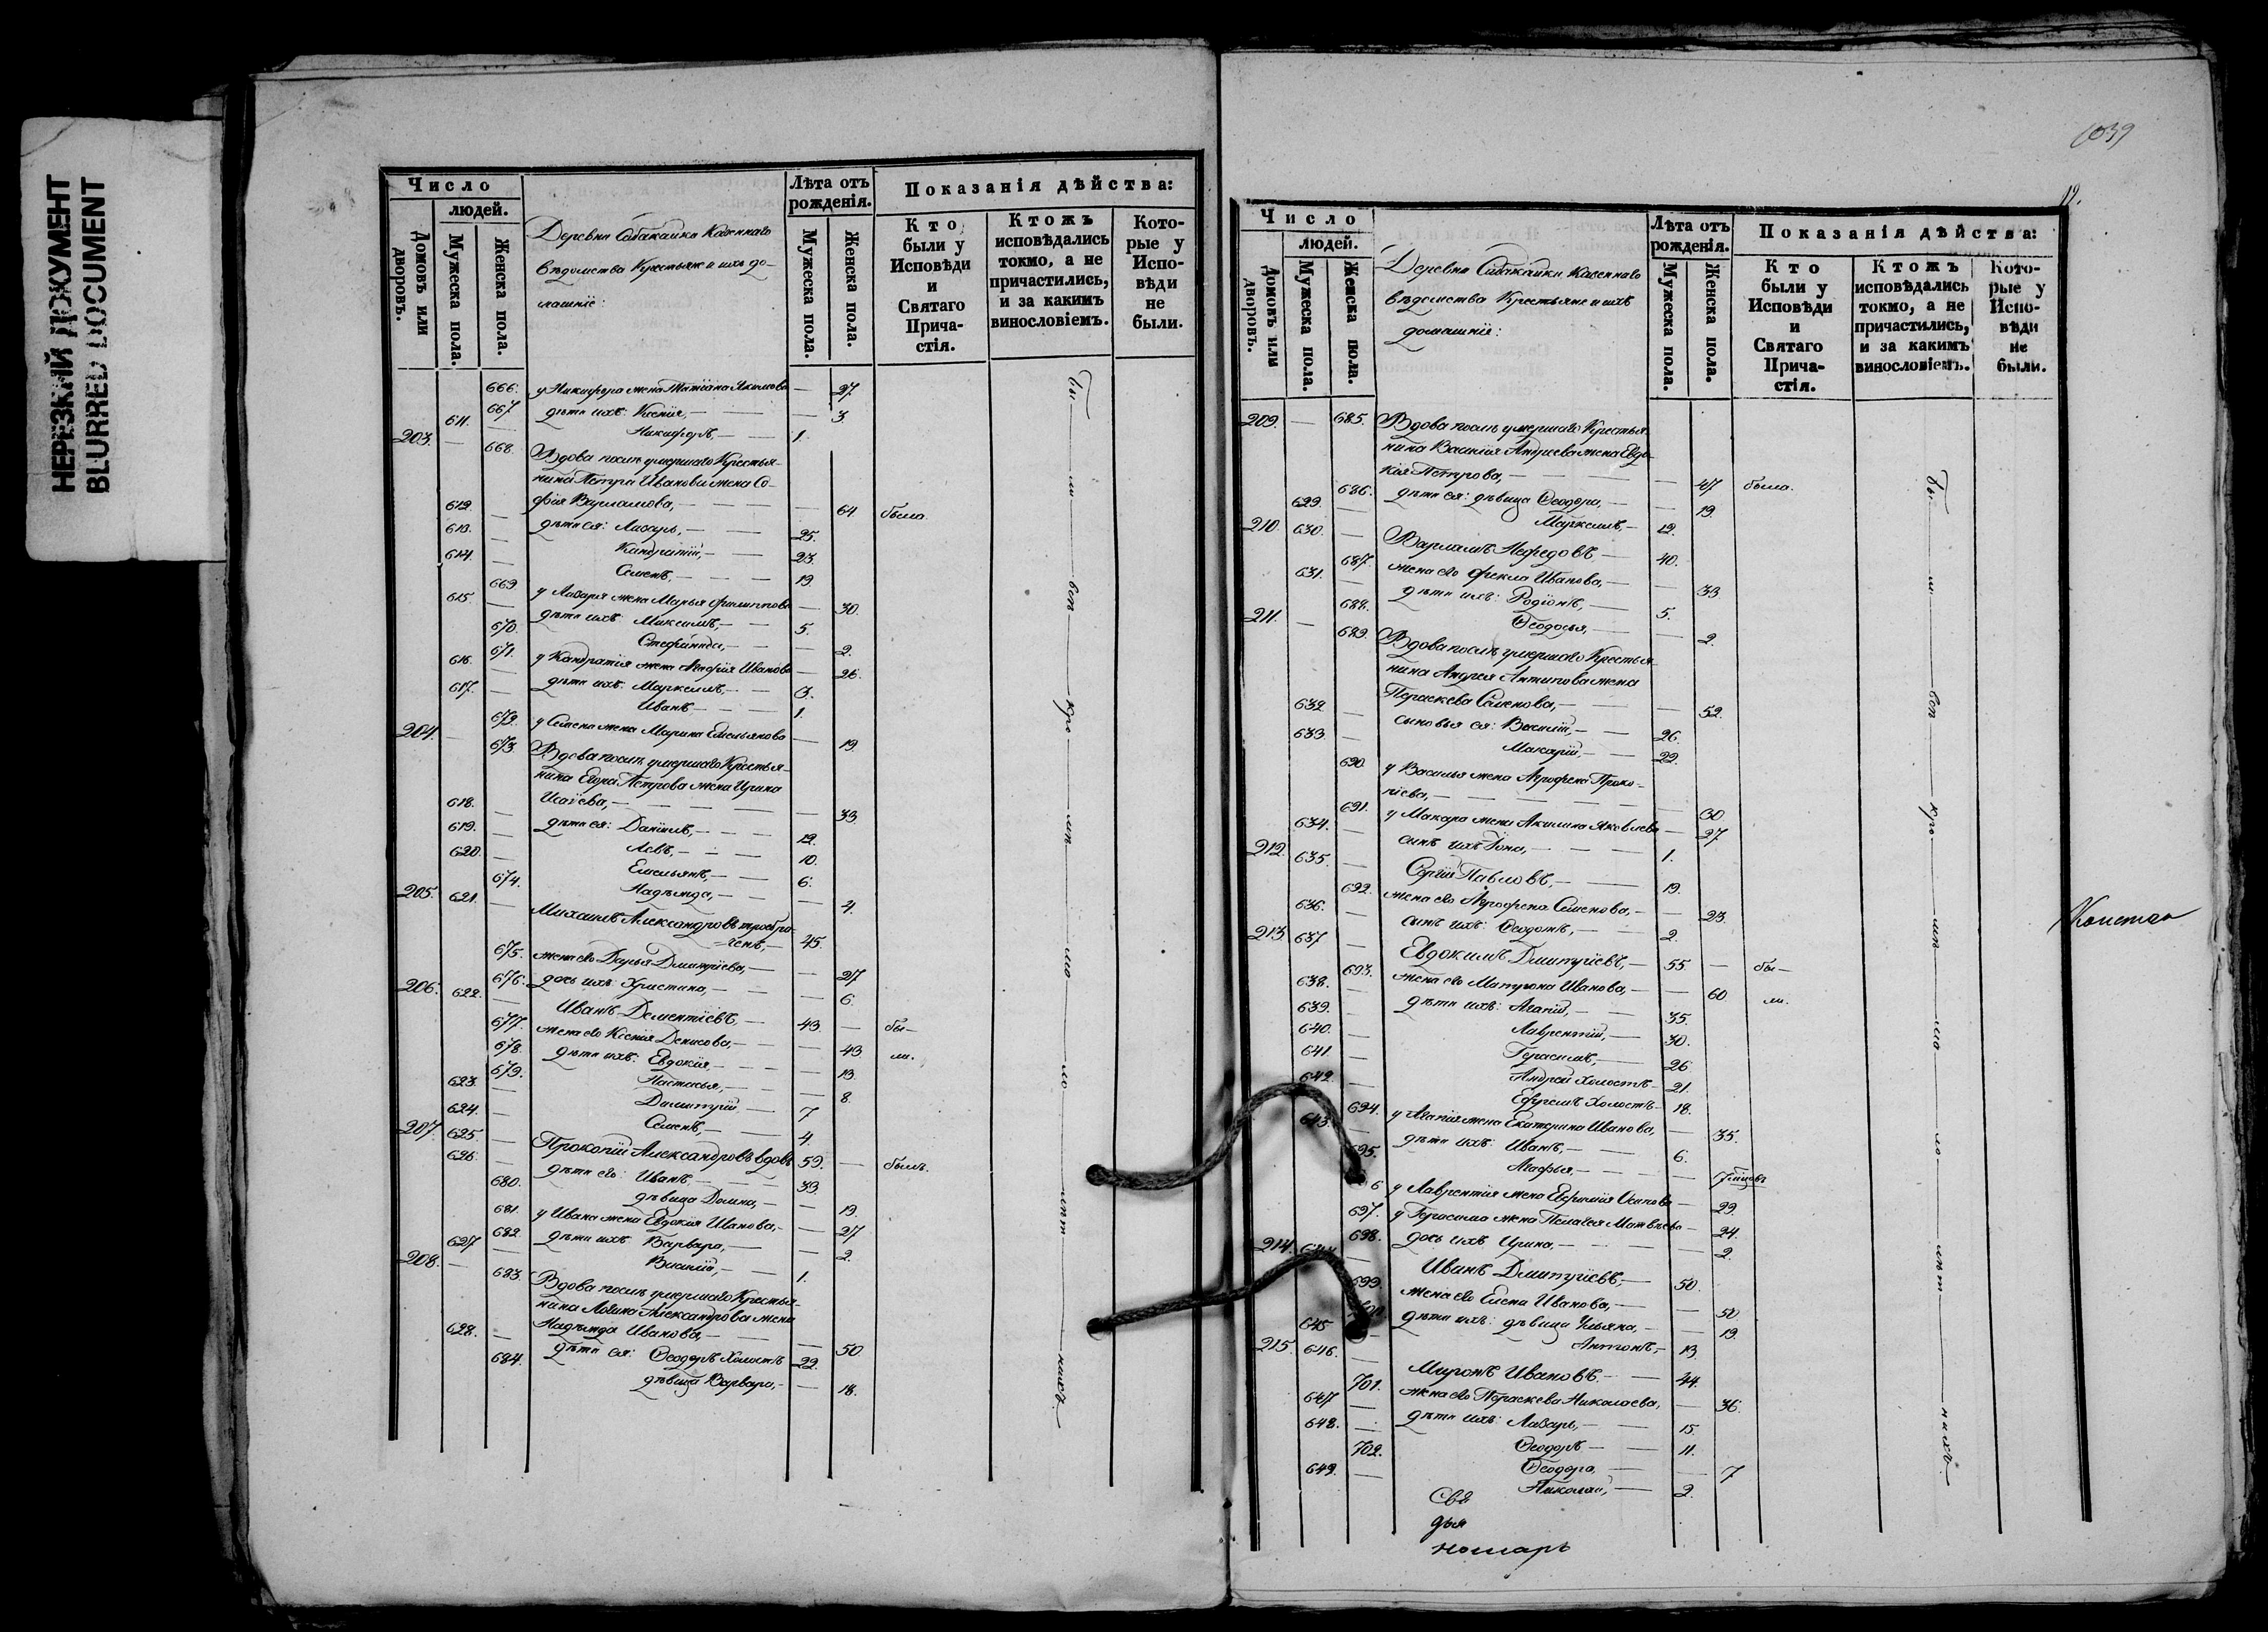 НЕРЕЗКИЙ ДОКУМЕНТ
BLURRED DOCUMENT
Число
людей.
Домовъ или дворовъ.
Мужеска пола.
Женска пола.
Деревни Сабакайки Казеннаго
вѣдомства Крестьяне и ихъ до-
машніе:
Лѣта отъ рожденія.
Мужеска пола.
Женска пола.
Показанія дѣйства:
Кто были у Исповѣди и Святаго Причастія.
Ктожъ исповѣдались токмо, а не причастились, и за какимъ винословіемъ.
Которые у Исповѣди не были.
666. у Никифора жена Татіана Якимова — 27
667 дѣти ихъ: Ксенія, — 3
611. Никифоръ, — 1.
203. — 668. Вдова послѣ умершаго Крестья-
нина Петра Иванова жена Со-
фія Варламова, — 64 была
612. дѣти ея: Лазарь, — 25.
613. Кондратій, — 23.
614. Семенъ, — 19.
669 у Лазаря жена Марья Филиппова — 30.
615. дѣти ихъ: Максимъ, — 5.
670. Стефанида, — 2.
671. у Кондратія жена Агафія Иванова — 26.
616. дѣти ихъ: Маркеллъ, — 3.
617. Иванъ — 1.
672. у Семена жена Марина Емельянова — 19
204. — 673. Вдова послѣ умершаго Крестья-
нина Егора Петрова жена Ирина
Исаіева, — 33.
618. дѣти ея: Даніилъ, — 12.
619. Левъ, — 10.
620. Емельянъ, — 6.
674. Надежда, — 4.
205. 621. Михаилъ Александровъ троебра-
ченъ, — 45.
675. жена его Дарья Дмитріева, — 27
676. дочь ихъ: Христина, — 6
206. 622. Иванъ Дементіевъ, — 43. — бы-
677. жена его Ксенія Денисова, — 43 ли.
678. дѣти ихъ: Евдокія — 13.
679. Настасья, — 8.
623. Димитрій, — 7
624. Семенъ, — 4.
207. 625. Прокопій Александровъ вдовъ 59. — былъ.
626. дѣти его: Иванъ, — 33.
680. дѣвица Домна, — 19.
681. у Ивана жена Евдокія Иванова, — 27
682. дѣти ихъ Варвара, — 2.
627 Василій, — 1.
208. — 683. Вдова послѣ умершаго Крестья-
нина Логина Александрова жена
Надежда Иванова, — 50.
628. дѣти ея: Ѳеодоръ холостъ 22.
684. дѣвица Варвара, — 18.
Бы — ли — всѣ — кро — мѣ — ма — ло — лѣт — нихъ.
1039
12.
Число
людей.
Домовъ или дворовъ.
Мужеска пола.
Женска пола.
Деревни Сабакайки Казеннаго
вѣдомства Крестьяне и ихъ
домашніе:
Лѣта отъ рожденія.
Мужеска пола.
Женска пола.
Показанія дѣйства:
Кто были у Исповѣди и Святаго Причастія.
Ктожъ исповѣдались токмо, а не причастились, и за какимъ винословіемъ.
Которые у Исповѣди не были.
209. — 685. Вдова послѣ умершаго Крестья-
нина Василія Андреева жена Евдо-
кія Петрова, — 47 была.
686. дѣти ея: дѣвица Ѳеодора, — 19.
629. Маркеллъ, — 12.
210. 630. Варламъ Нефедовъ — 40.
687. жена его Фекла Иванова, — 33
631. дѣти ихъ: Родіонъ, — 5.
688. Ѳеодосья, — 2.
211. — 689. Вдова послѣ умершаго Крестья-
нина Андрея Антипова жена
Пераскева Семенова, — 52.
632 сыновья ея: Василій, — 26.
633. Макарій, — 22.
690 у Василья жена Агрофена Проко-
піева, — 30
691. у Макара жена Акилина Яковлева — 27
634. сынъ ихъ Іона, — 1.
212. 635. Сергій Павловъ, — 19.
692. жена его Агрофена Семенова, — 23.
636. сынъ ихъ: Ѳеодотъ, — 2.
213. 637 Евдокимъ Дмитріевъ, — 55. — бы-
693. жена его Матрона Иванова, — 60 ли.
638. дѣти ихъ: Агапій, — 35.
639. Лаврентій, — 30.
640. Герасимъ, — 26
641. Андрей холостъ — 21.
642. Ефремъ холостъ — 18.
694. у Агапія жена Екатерина Иванова, — 35.
643. дѣти ихъ: Иванъ, — 6.
695. Агафья, — 7
6 у Лаврентія жена Евфимія Осипова — 29.
697. у Герасима жена Пелагея Матвѣева — 24.
698. дочь ихъ Ирина, — 2.
214. 644 Иванъ Дмитріевъ, — 50.
699. жена его Елена Иванова, — 50
дѣти ихъ: дѣвица Ульяна, — 19.
645 Антонъ, — 13.
215. 646. Миронъ Ивановъ. — 44.
701. жена его Пераскева Николаева, — 36.
647 дѣти ихъ: Лазарь, — 15.
648. Ѳеодоръ — 11.
702. Ѳеодора — 7
649. Николай, — 2.
Бы — ли — всѣ — кро — мѣ — ма — ло — лѣт — нихъ.
Свя
дья
номарь